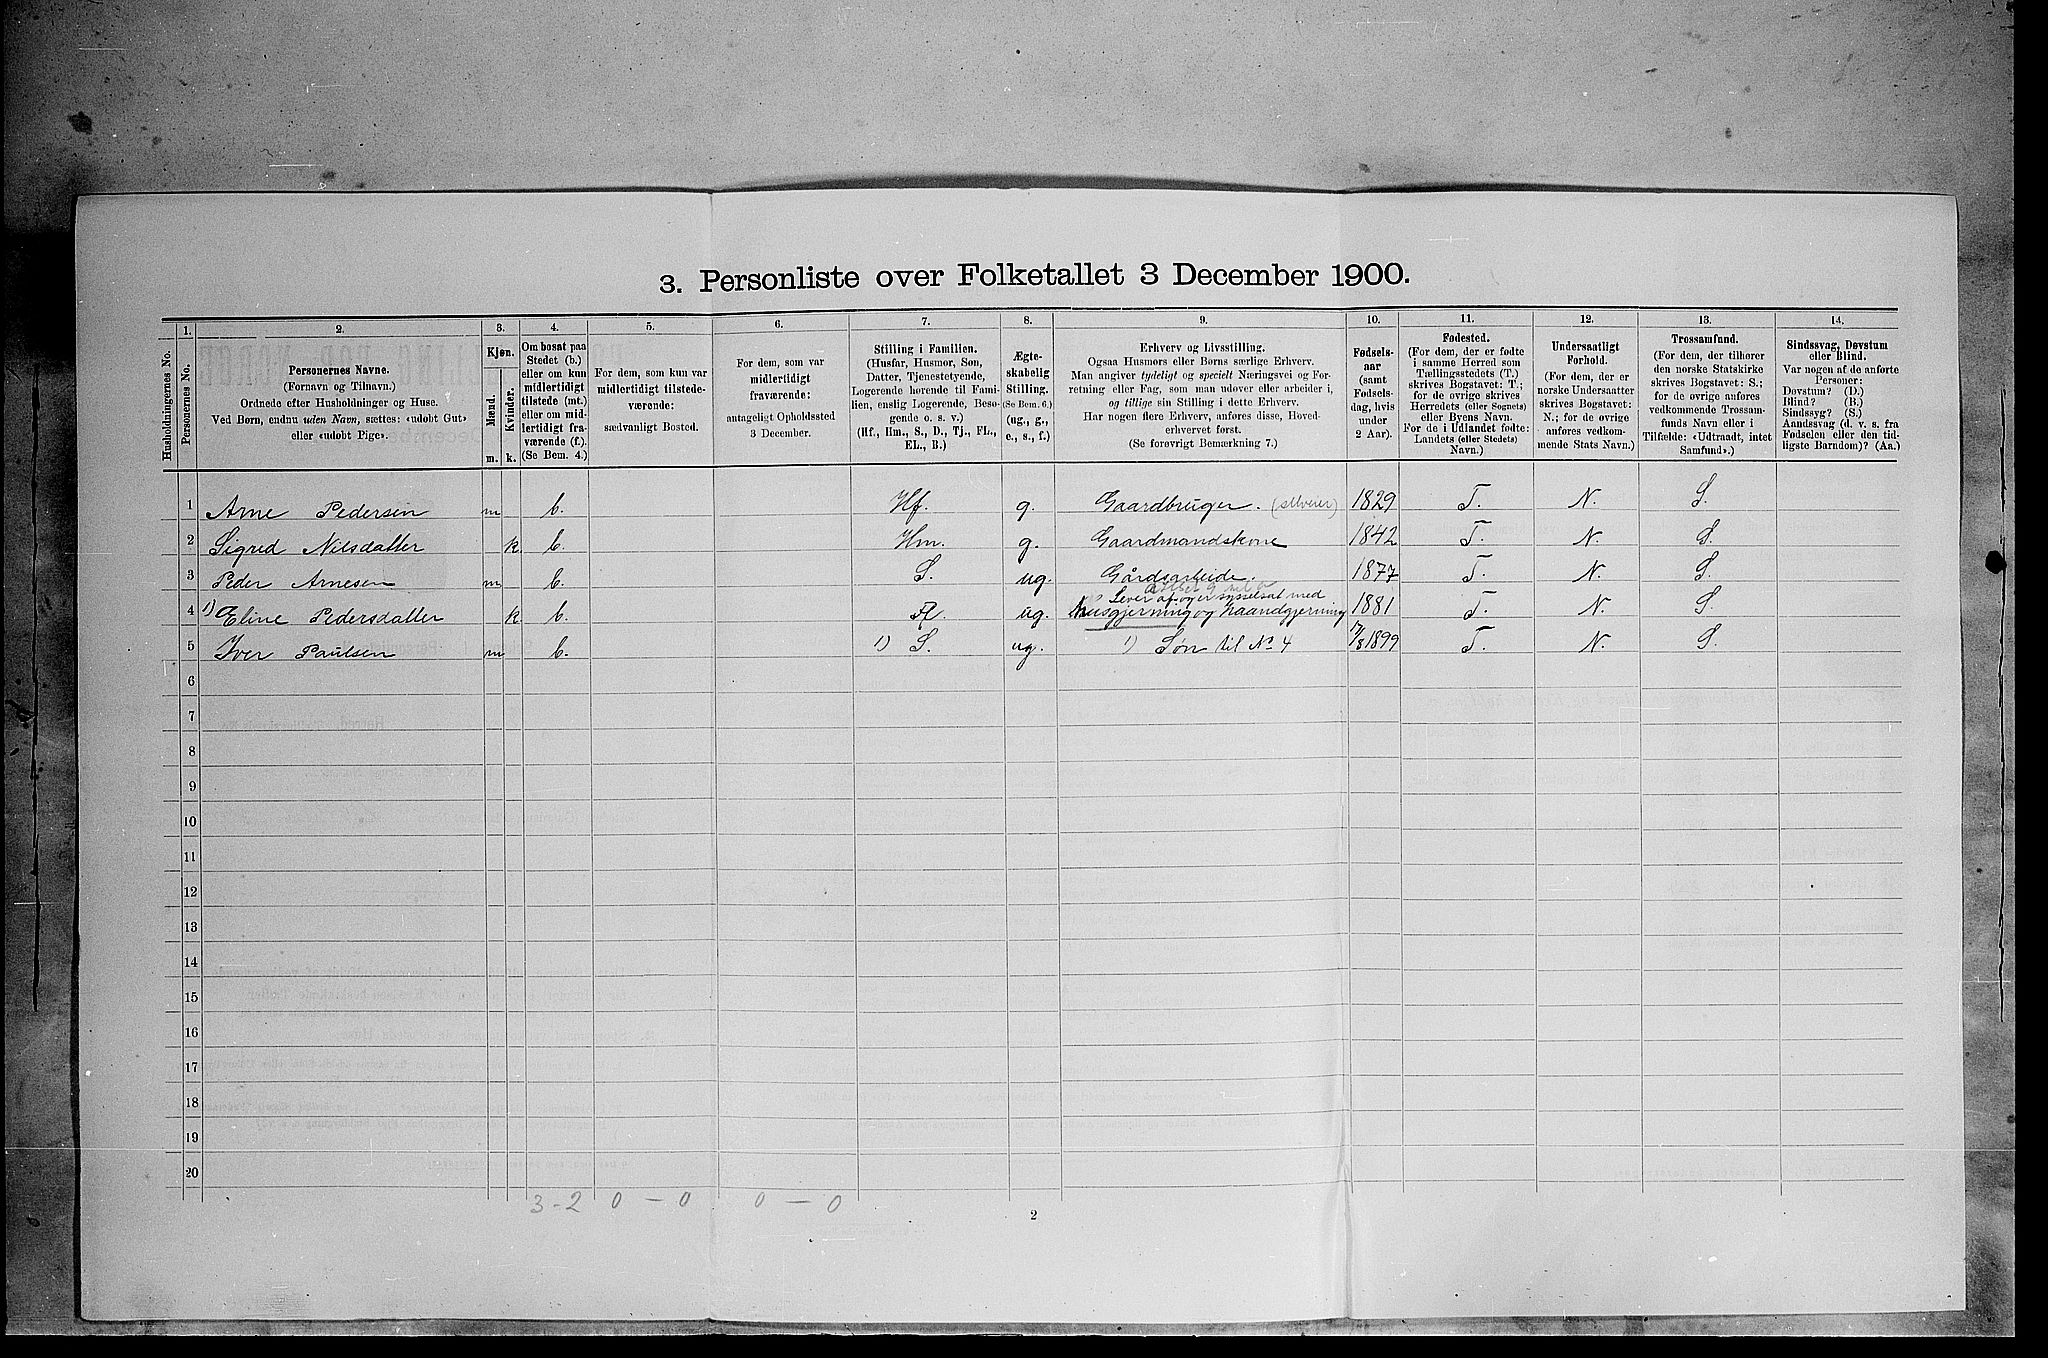 3. Personliste over Folketallet 3 December 1900.
1. 2. 3. 4. 5. 6. 7. 8. 9. 10. 11. 12. 13. 14.
Husholdningernes No.
Personernes No.
Personernes Navne.
(Fornavn og Tilnavn.)
Ordnede efter Husholdninger og Huse.
Ved Børn, endnu uden Navn, sættes: «udøbt Gut»
eller «udøbt Pige».
Kjøn.
Mænd.
Kvinder.
m. k.
Om bosat paa
Stedet (b.)
eller om kun
midlertidigt
tilstede (mt.)
eller om mid-
lertidigt fra-
værende (f.)
(Se Bem. 4.)
For dem, som kun var
midlertidigt tilstede-
værende:
sædvanligt Bosted.
For dem, som var
midlertidigt
fraværende:
antageligt Opholdssted
3 December.
Stilling i Familien.
(Husfar, Husmor, Søn,
Datter, Tjenestetyende,
Logerende hørende til Fami-
lien, enslig Logerende, Besø-
gende o. s. v.)
(Hf., Hm., S., D., Tj., FL.,
EL., B.)
Ægte-
skabelig
Stilling.
(Se Bem. 6.)
(ug., g.,
e., s., f.)
Erhverv og Livsstilling.
Ogsaa Husmors eller Børns særlige Erhverv.
Man angiver tydeligt og specielt Næringsvei og For-
retning eller Fag, som man udøver eller arbeider i,
og tillige sin Stilling i dette Erhverv.
Har nogen flere Erhverv, anføres disse, Hoved-
erhvervet først.
(Se forøvrigt Bemærkning 7.)
Fødsels-
aar
(samt
Fødsels-
dag, hvis
under
2 Aar).
Fødested.
(For dem, der er fødte
i samme Herred som
Tællingsstedets (T.)
skrives Bogstavet: T.;
for de øvrige skrives
Herredets (eller Sognets)
eller Byens Navn.
For de i Udlandet fødte:
Landets (eller Stedets)
Navn.)
Undersaatligt
Forhold.
(For dem, der er
norske Undersaatter
skrives Bogstavet:
N.; for de øvrige
anføres vedkom-
mende Stats Navn.)
Trossamfund.
(For dem, der tilhører
den norske Statskirke
skrives Bogstavet: S.;
for de øvrige anføres
vedkommende Trossam-
funds Navn eller i
Tilfælde: «Udtraadt, intet
Samfund».)
Sindssvag, Døvstum
eller Blind.
Var nogen af de anførte
Personer:
Døvstum? (D.)
Blind? (B.)
Sindssyg? (S.)
Aandssvag (d. v. s. fra
Fødselen eller den tid-
ligste Barndom)? (Aa.)
1 Arne Pedersen m b. Hf. g. Gaardbruger. (selveier) 1829 T. N. S.
2 Sigred Nilsdatter k b. Hm. g. Gaardmandskone 1842 T. N. S.
3 Peder Arnesen m b. S. ug. Gårdsarbeide. 1877 T. N. S.
Lever af og er sysselsat med
4 1) Eline Pedersdatter k b. ug. husgjerning og haandgjerning 1881 T. N. S.
5 Iver Paulsen m b. 1) S. ug. 1) Søn til No 4 17/8 1899 T. N. S.
6
7
8
9
10
11
12
13
14
15
16
17
18
19
20
3 - 2 0 — 0 0 — 0
2